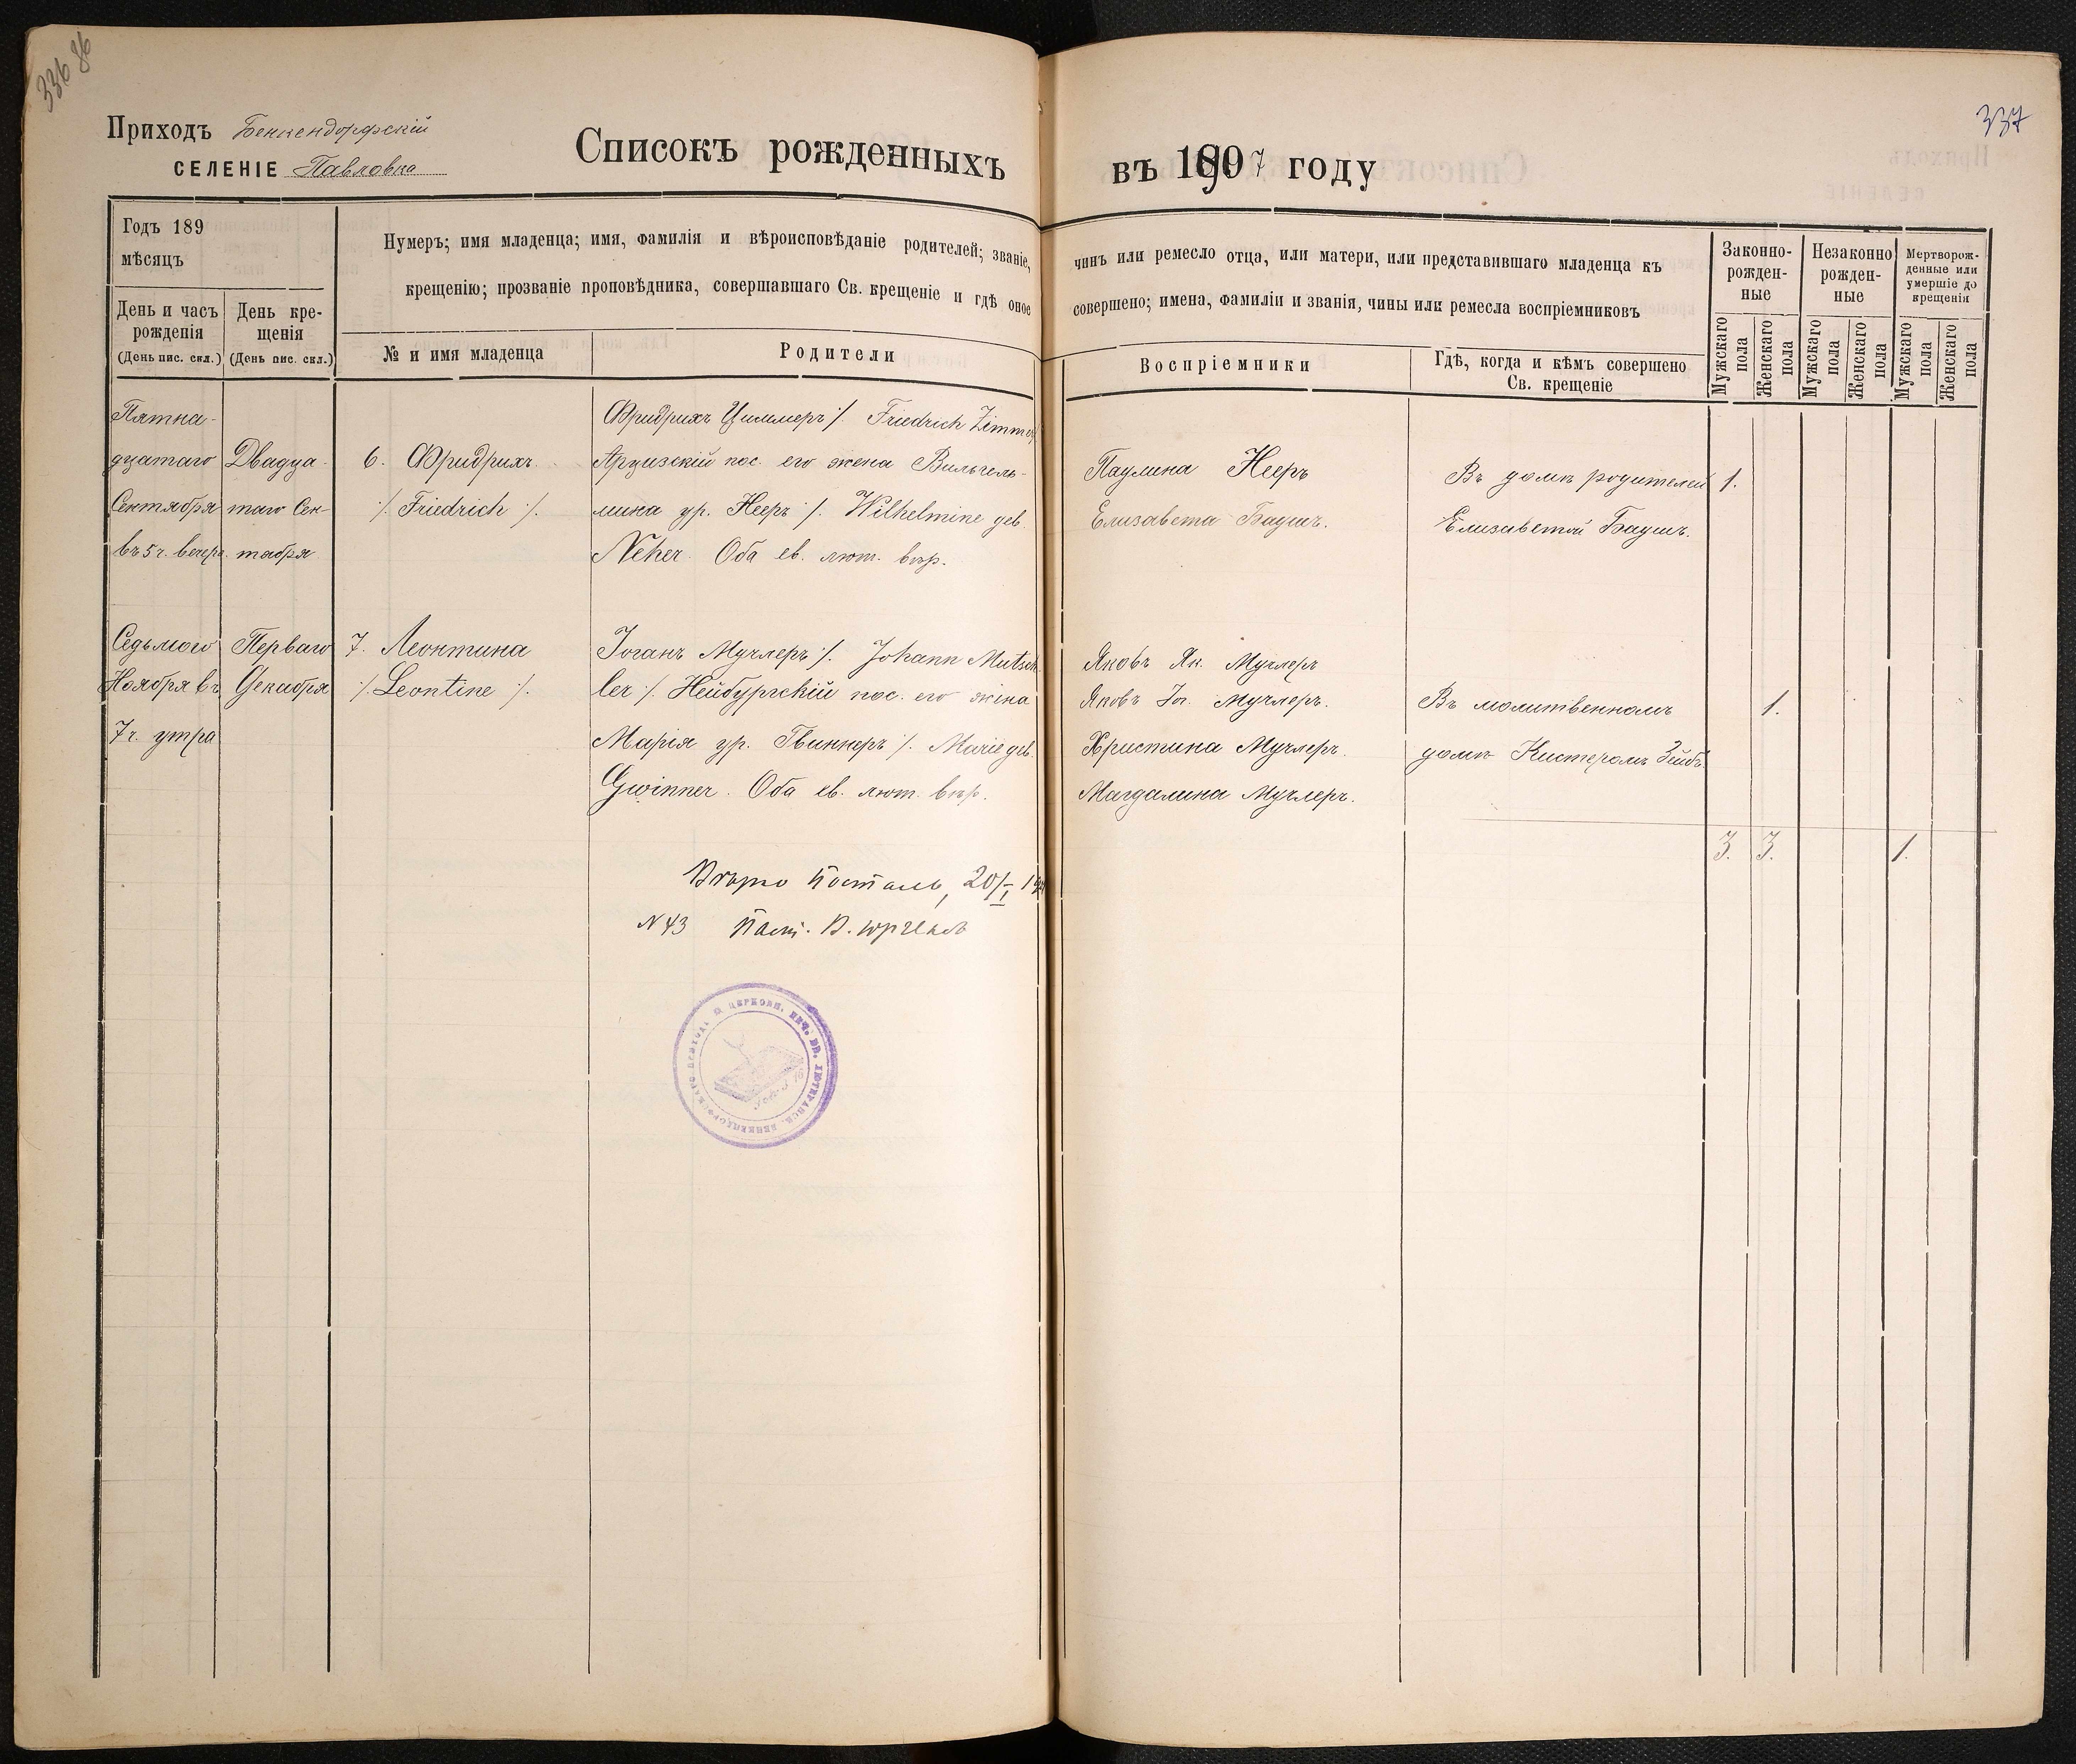 336 86
337
Приходъ Бенкендорфскій
СЕЛЕНІЕ Павловка
Списокъ рожденныхъ въ 1907 году
Годъ 189
мѣсяцъ
День и часъ
рожденія
(День пис. скл.)
День кре-
щенія
(День пис. скл.)
Нумеръ; имя младенца; имя, фамилія и вѣроисповѣданіе родителей; званіе,
крещенію; прозваніе проповѣдника, совершавшаго Св. крещеніе и гдѣ оное
№ и имя младенца
Родители
чинъ или ремесло отца, или матери, или представившаго младенца къ
совершено; имена, фамиліи и званія, чины или ремесла воспріемниковъ
Воспріемники
Гдѣ, когда и кѣмъ совершено
Св. крещеніе
Законно-
рожден-
ные
Незаконно
рожден-
ные
Мертворож-
денные или
умершіе до
крещенія
Мужскаго
пола
Женскаго
пола
Мужскаго
пола
Женскаго
пола
Мужскаго
пола
Женскаго
пола
Пятна-
дцатаго
Сентября
въ 5 ч. вечера
Двадца-
таго Сен-
тября
6. Фридрихъ
·/. Friedrich ·/.
Фридрихъ Циммеръ ·/. Friedrich Zimmer
Арцизскій пос. его жена Вильгель-
мина ур. Нееръ ·/. Wilhelmine geb.
Neher. Оба ев. лют. вѣр.
Паулина Нееръ
Елизавета Баушъ.
Въ домѣ родителей
Елизаветой Баушъ.
1.
Седьмого
Ноября въ
7 ч. утра
Перваго
Декабря
7. Леонтина
·/. Leontine ·/.
Іоганъ Мучлеръ ·/. Johann Mutsch
ler ·/. Нейбургскій пос. его жена
Марія ур. Гвиннеръ ·/. Marie geb.
Gwinner. Оба ев. лют. вѣр.
Яковъ Як. Мучлеръ
Яковъ Іог. Мучлеръ.
Христина Мучлеръ.
Магдалина Мучлеръ.
Въ молитвенномъ
домѣ Кистеромъ Зейбъ.
1.
3. 3. 1.
Вѣрно 20/I
N 43 Паст.